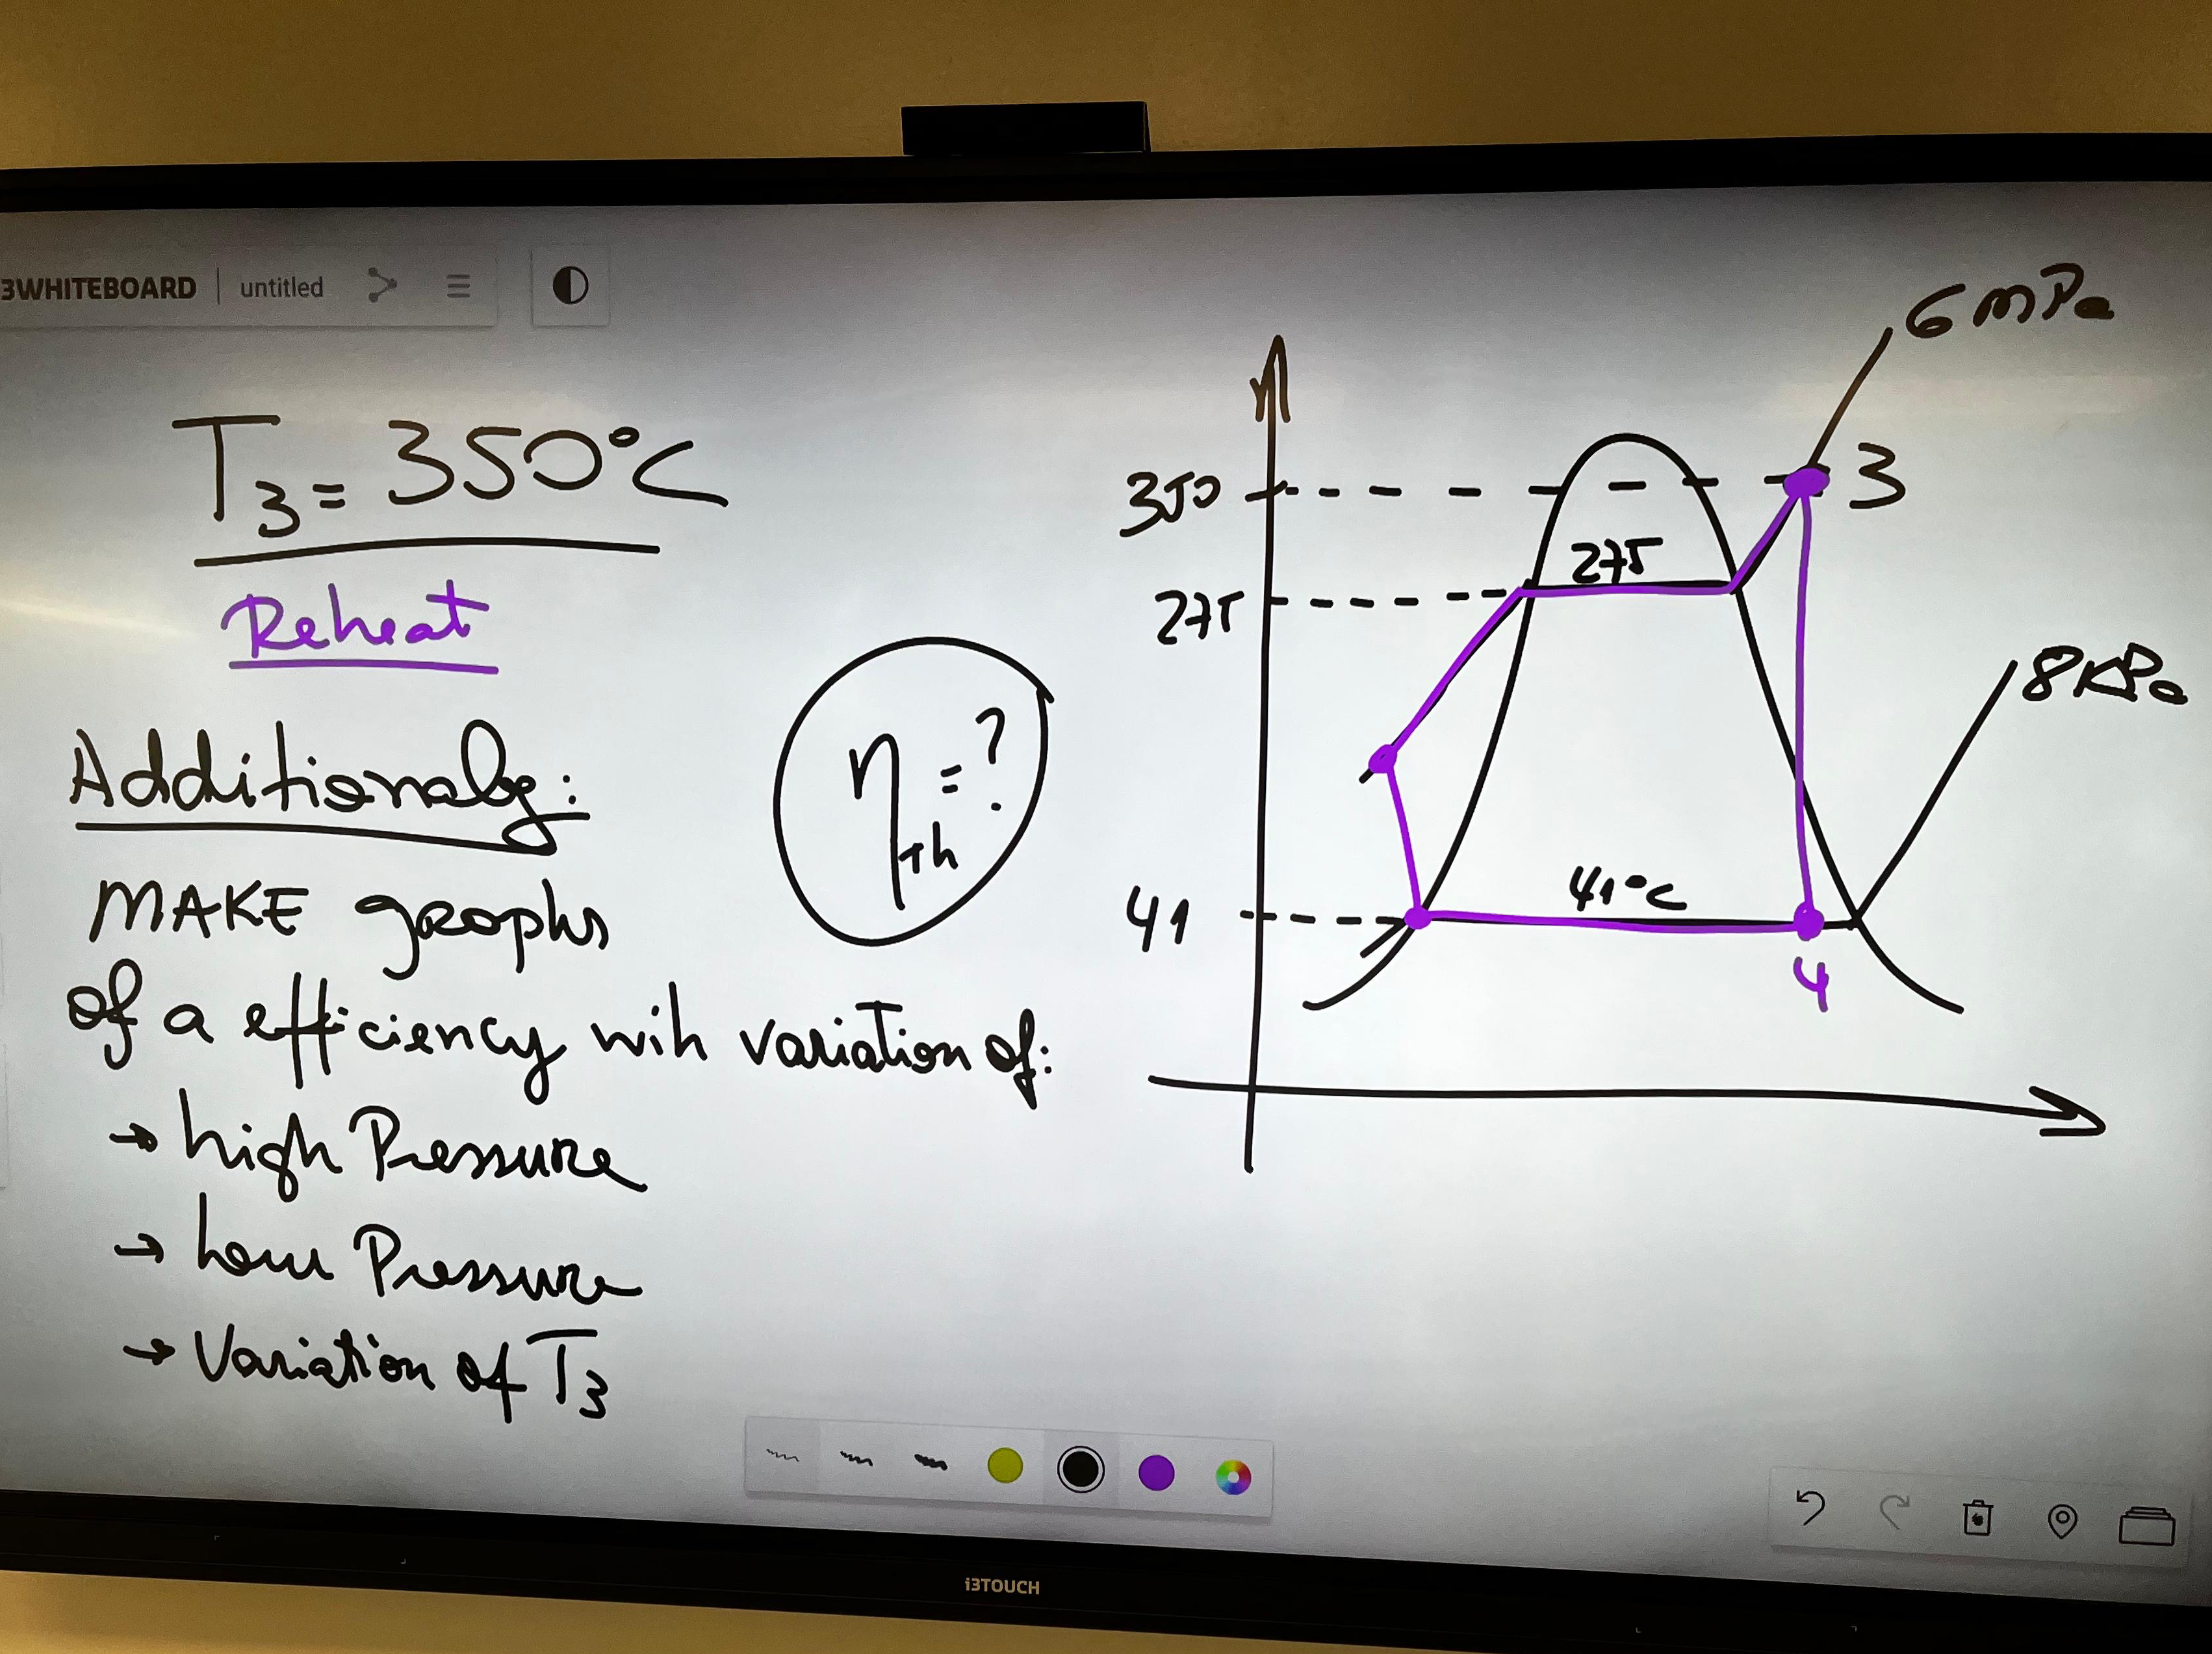 3WHITEBOARD | untitled
T3 = 350°C
Reheat
Additionaly:
MAKE graphs
of a efficiency wih variation of:
→ high Pressure
→ Low Pressure
→ Variation of T3
ηTh = ?
6 MPa
350
3
275
275
8 KPa
41°C
41
4
i3TOUCH